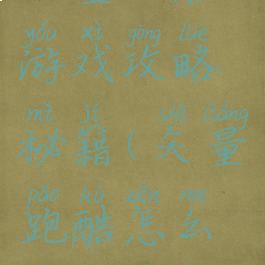 yóu xì gōng lüè
游戏攻略
mì jí shǐ liàng
秘籍(矢量
pǎo kù zěn me
跑酷怎么